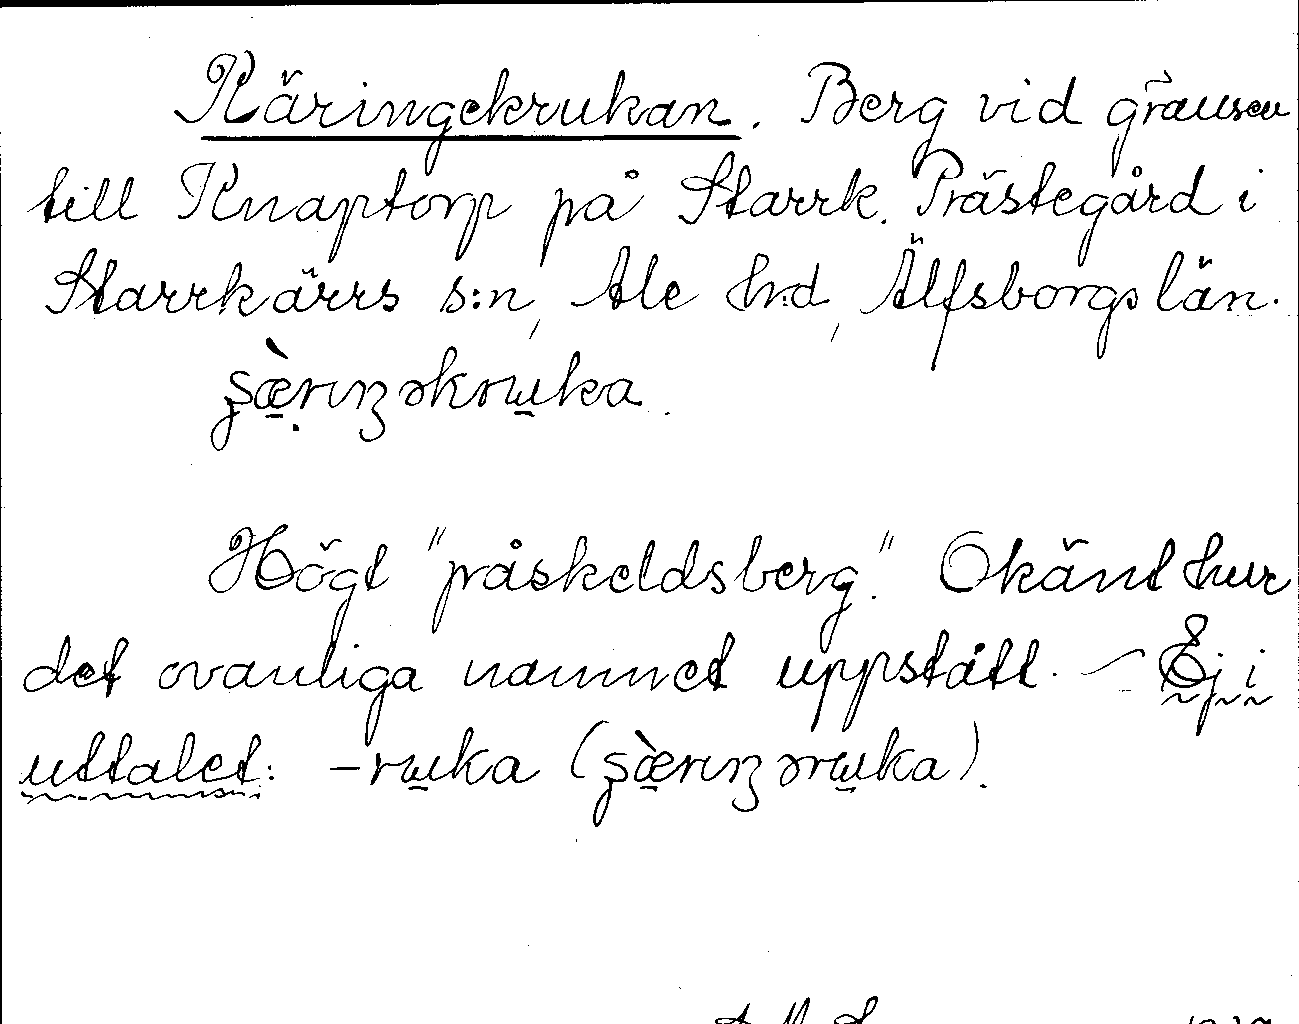 Käringekrukan. Berg vid gränsen
till Knaptorp på Starrk. Prästegård i
Starrkärrs s:n, Ale h:d, Älfsborgs län.
Högt "påskeldsberg." Okänt hur
det ovanliga namnet uppstått. – Ej i
uttalet: -rɯka